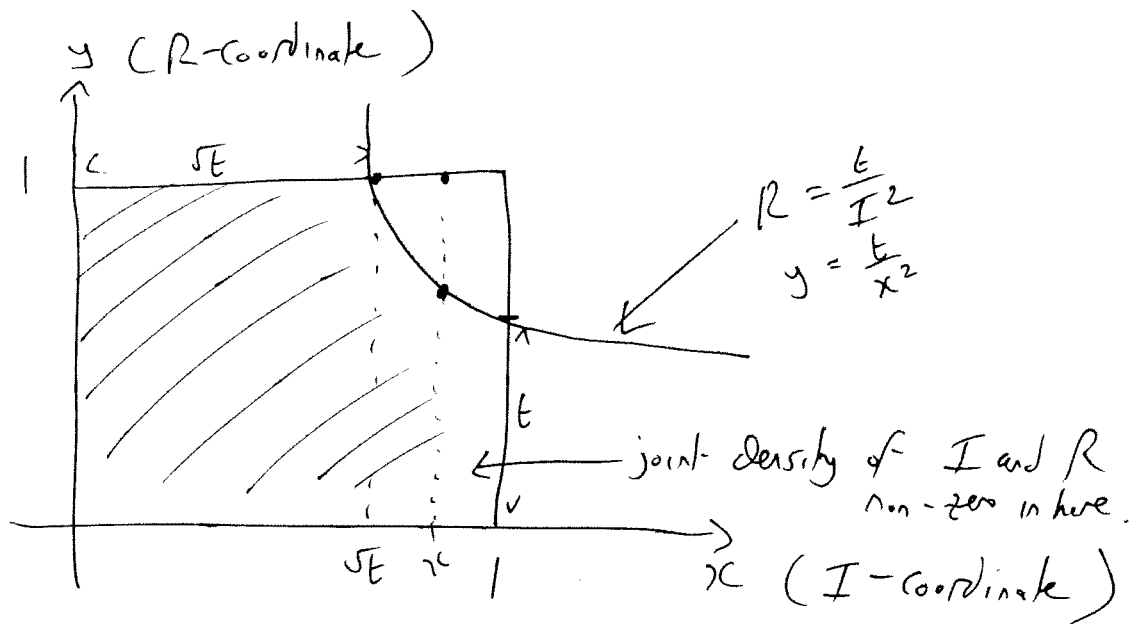 y (R-coordinate)
1
√t
R = t/I²
y = t/x²
t
joint density of I and R
non-zero in here.
√t x 1
x (I-coordinate)